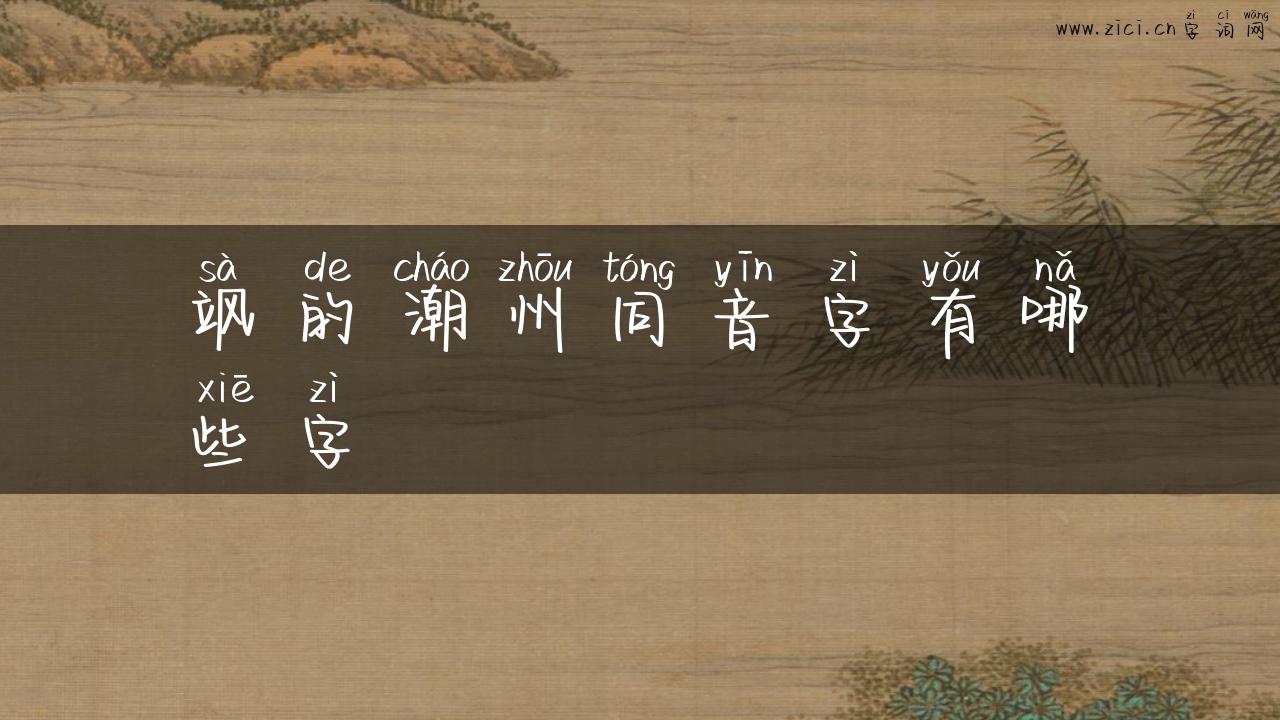 www.zici.cn 字词网
zì cí wǎng
sà de cháo zhōu tóng yīn zì yǒu nǎ
飒的潮州同音字有哪
xiē zì
些字